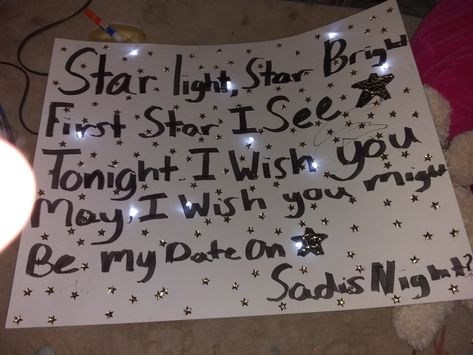 Star light, Star Bright
First Star I See
Tonight I Wish you
May, I Wish you Migh
Be my Date On
Sadis Night?